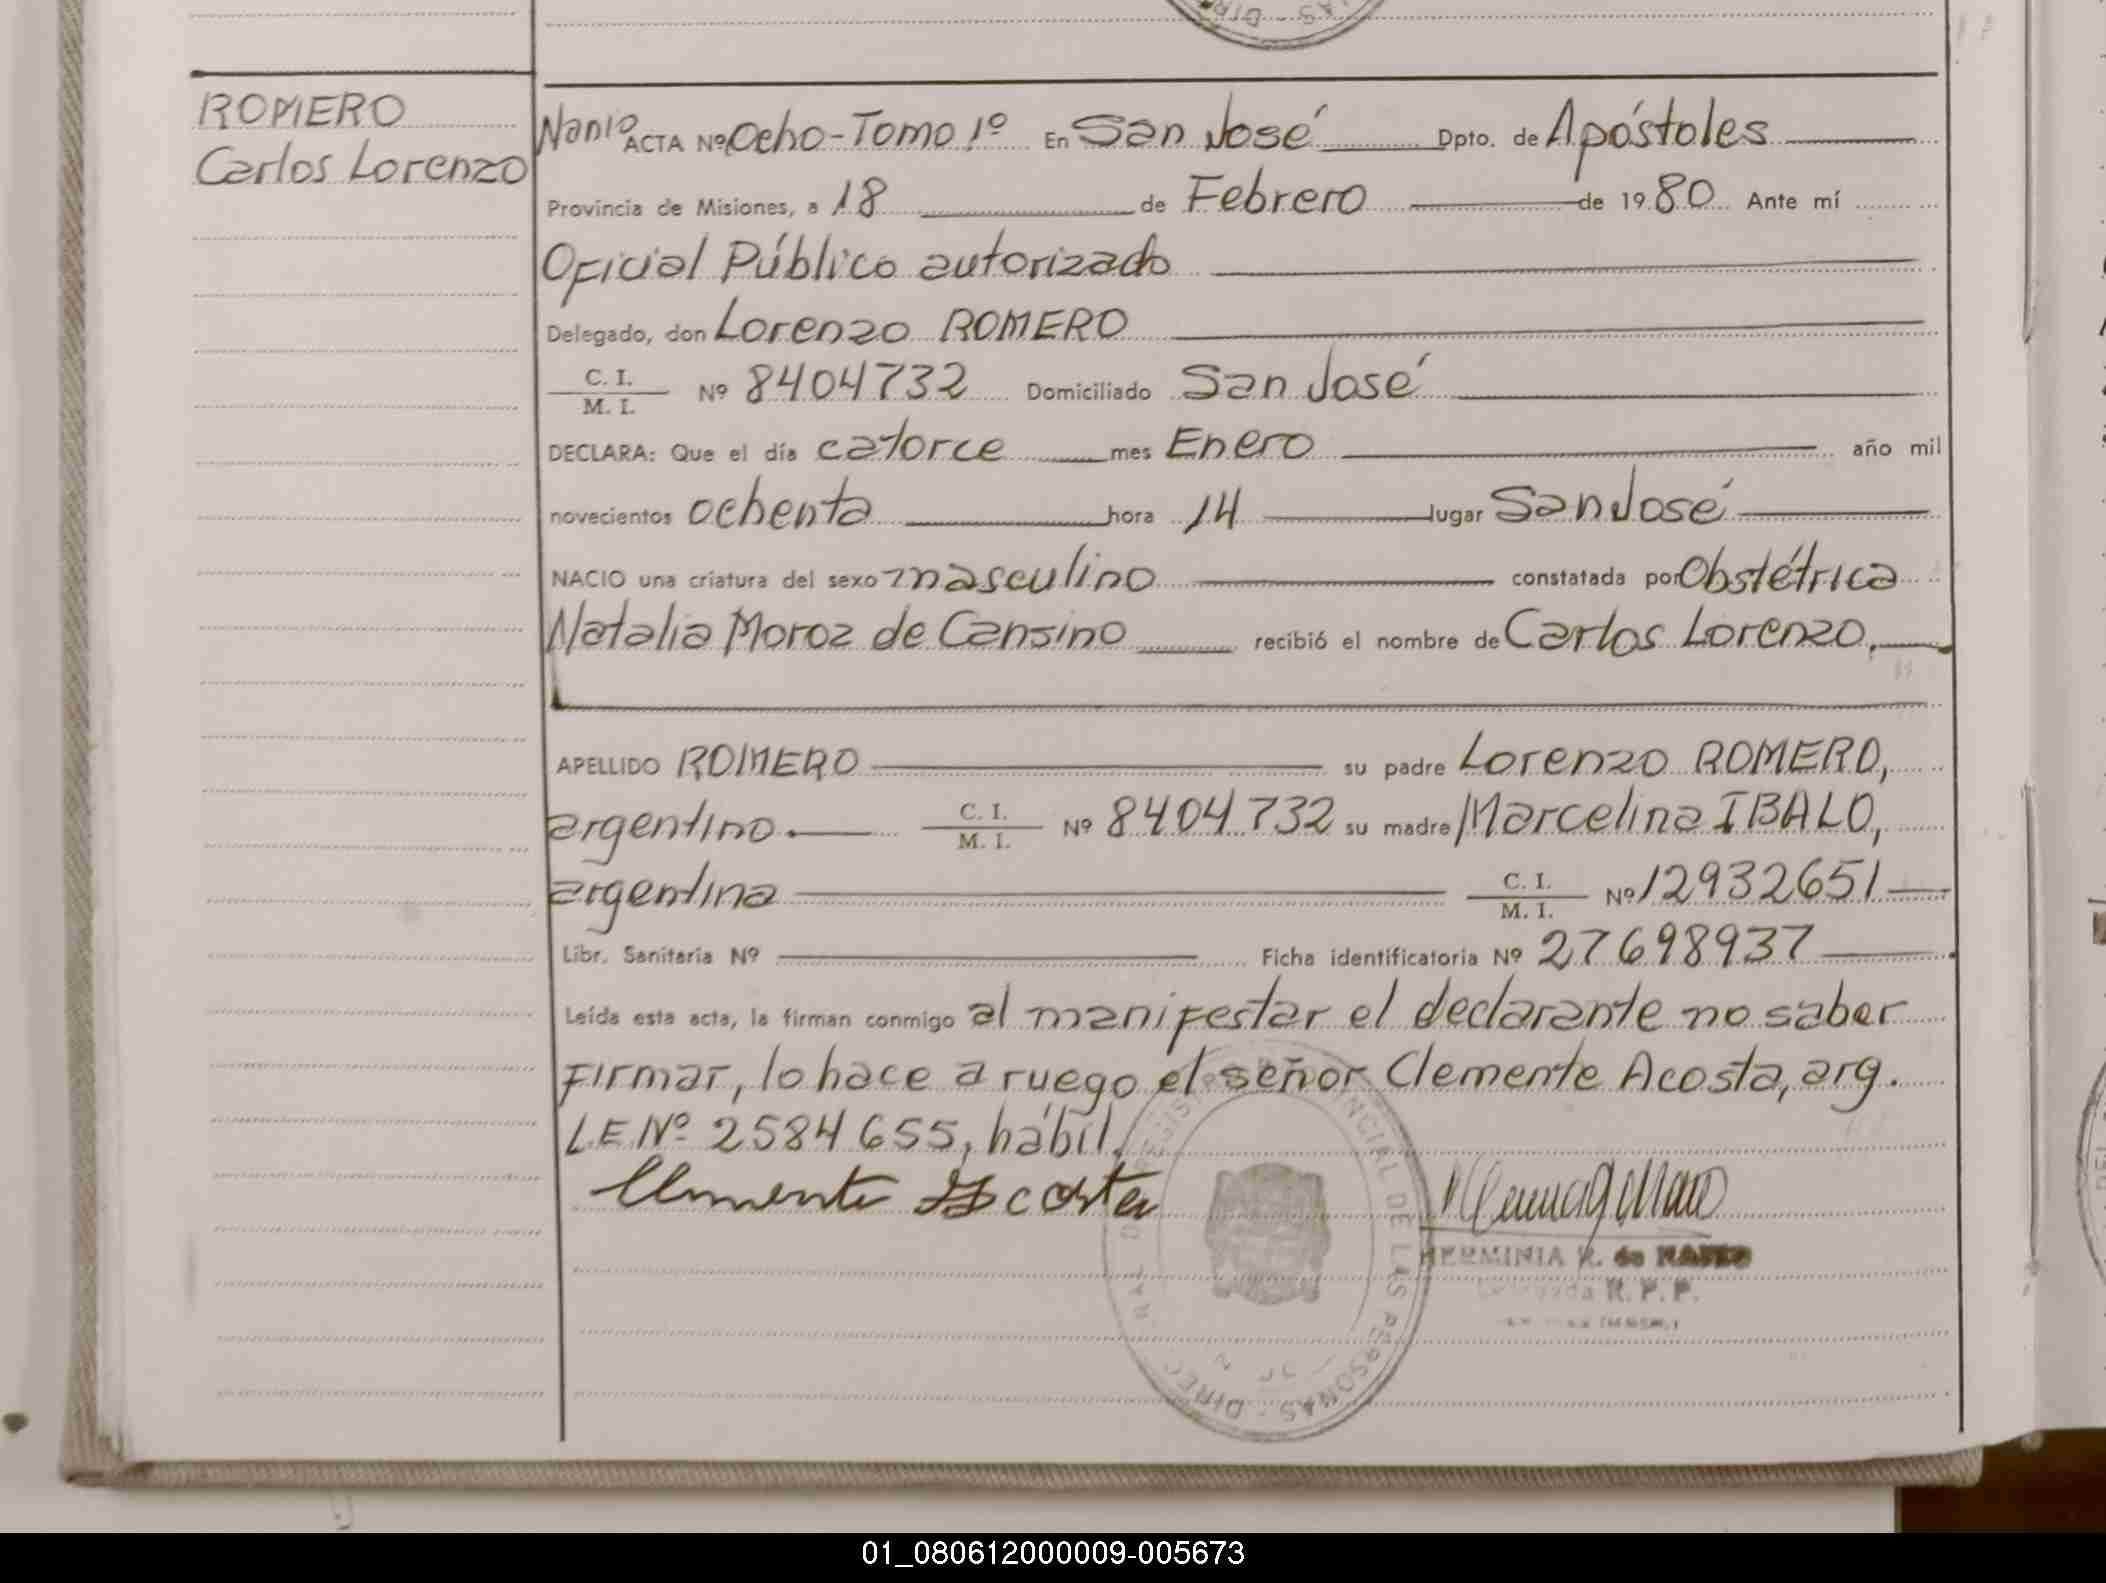 ROMERO
Carlos Lorenzo
ACTA Nº Ocho - Tomo 1º En San José Dpto. de Apóstoles
Provincia de Misiones, a 18 de Febrero de 1980 Ante mí
Oficial Público autorizado
Delegado, don Lorenzo ROMERO
C. I.
M. I. Nº 8404732 Domiciliado San José
DECLARA: Que el día catorce mes Enero año mil
novecientos ochenta hora 14 lugar San José
NACIO una criatura del sexo masculino constatada por Obstétrica
Natalia Moroz de Cansino recibió el nombre de Carlos Lorenzo,
APELLIDO ROMERO su padre Lorenzo ROMERO,
argentino. C. I.
M. I. Nº 8404732 su madre Marcelina IBALO,
argentina C. I.
M. I. Nº 12932651
Libr. Sanitaria Nº Ficha identificatoria Nº 27698937
Leída esta acta, la firman conmigo al manifestar el declarante no saber
firmar, lo hace a ruego el señor Clemente Acosta, arg.
L.E.Nº 2584655, hábil.
Clemente Acosta
HERMINIA R. de
Delegada R. P. P.
PROVINCIAL DE LAS PERSONAS - DIREC
01_080612000009-005673